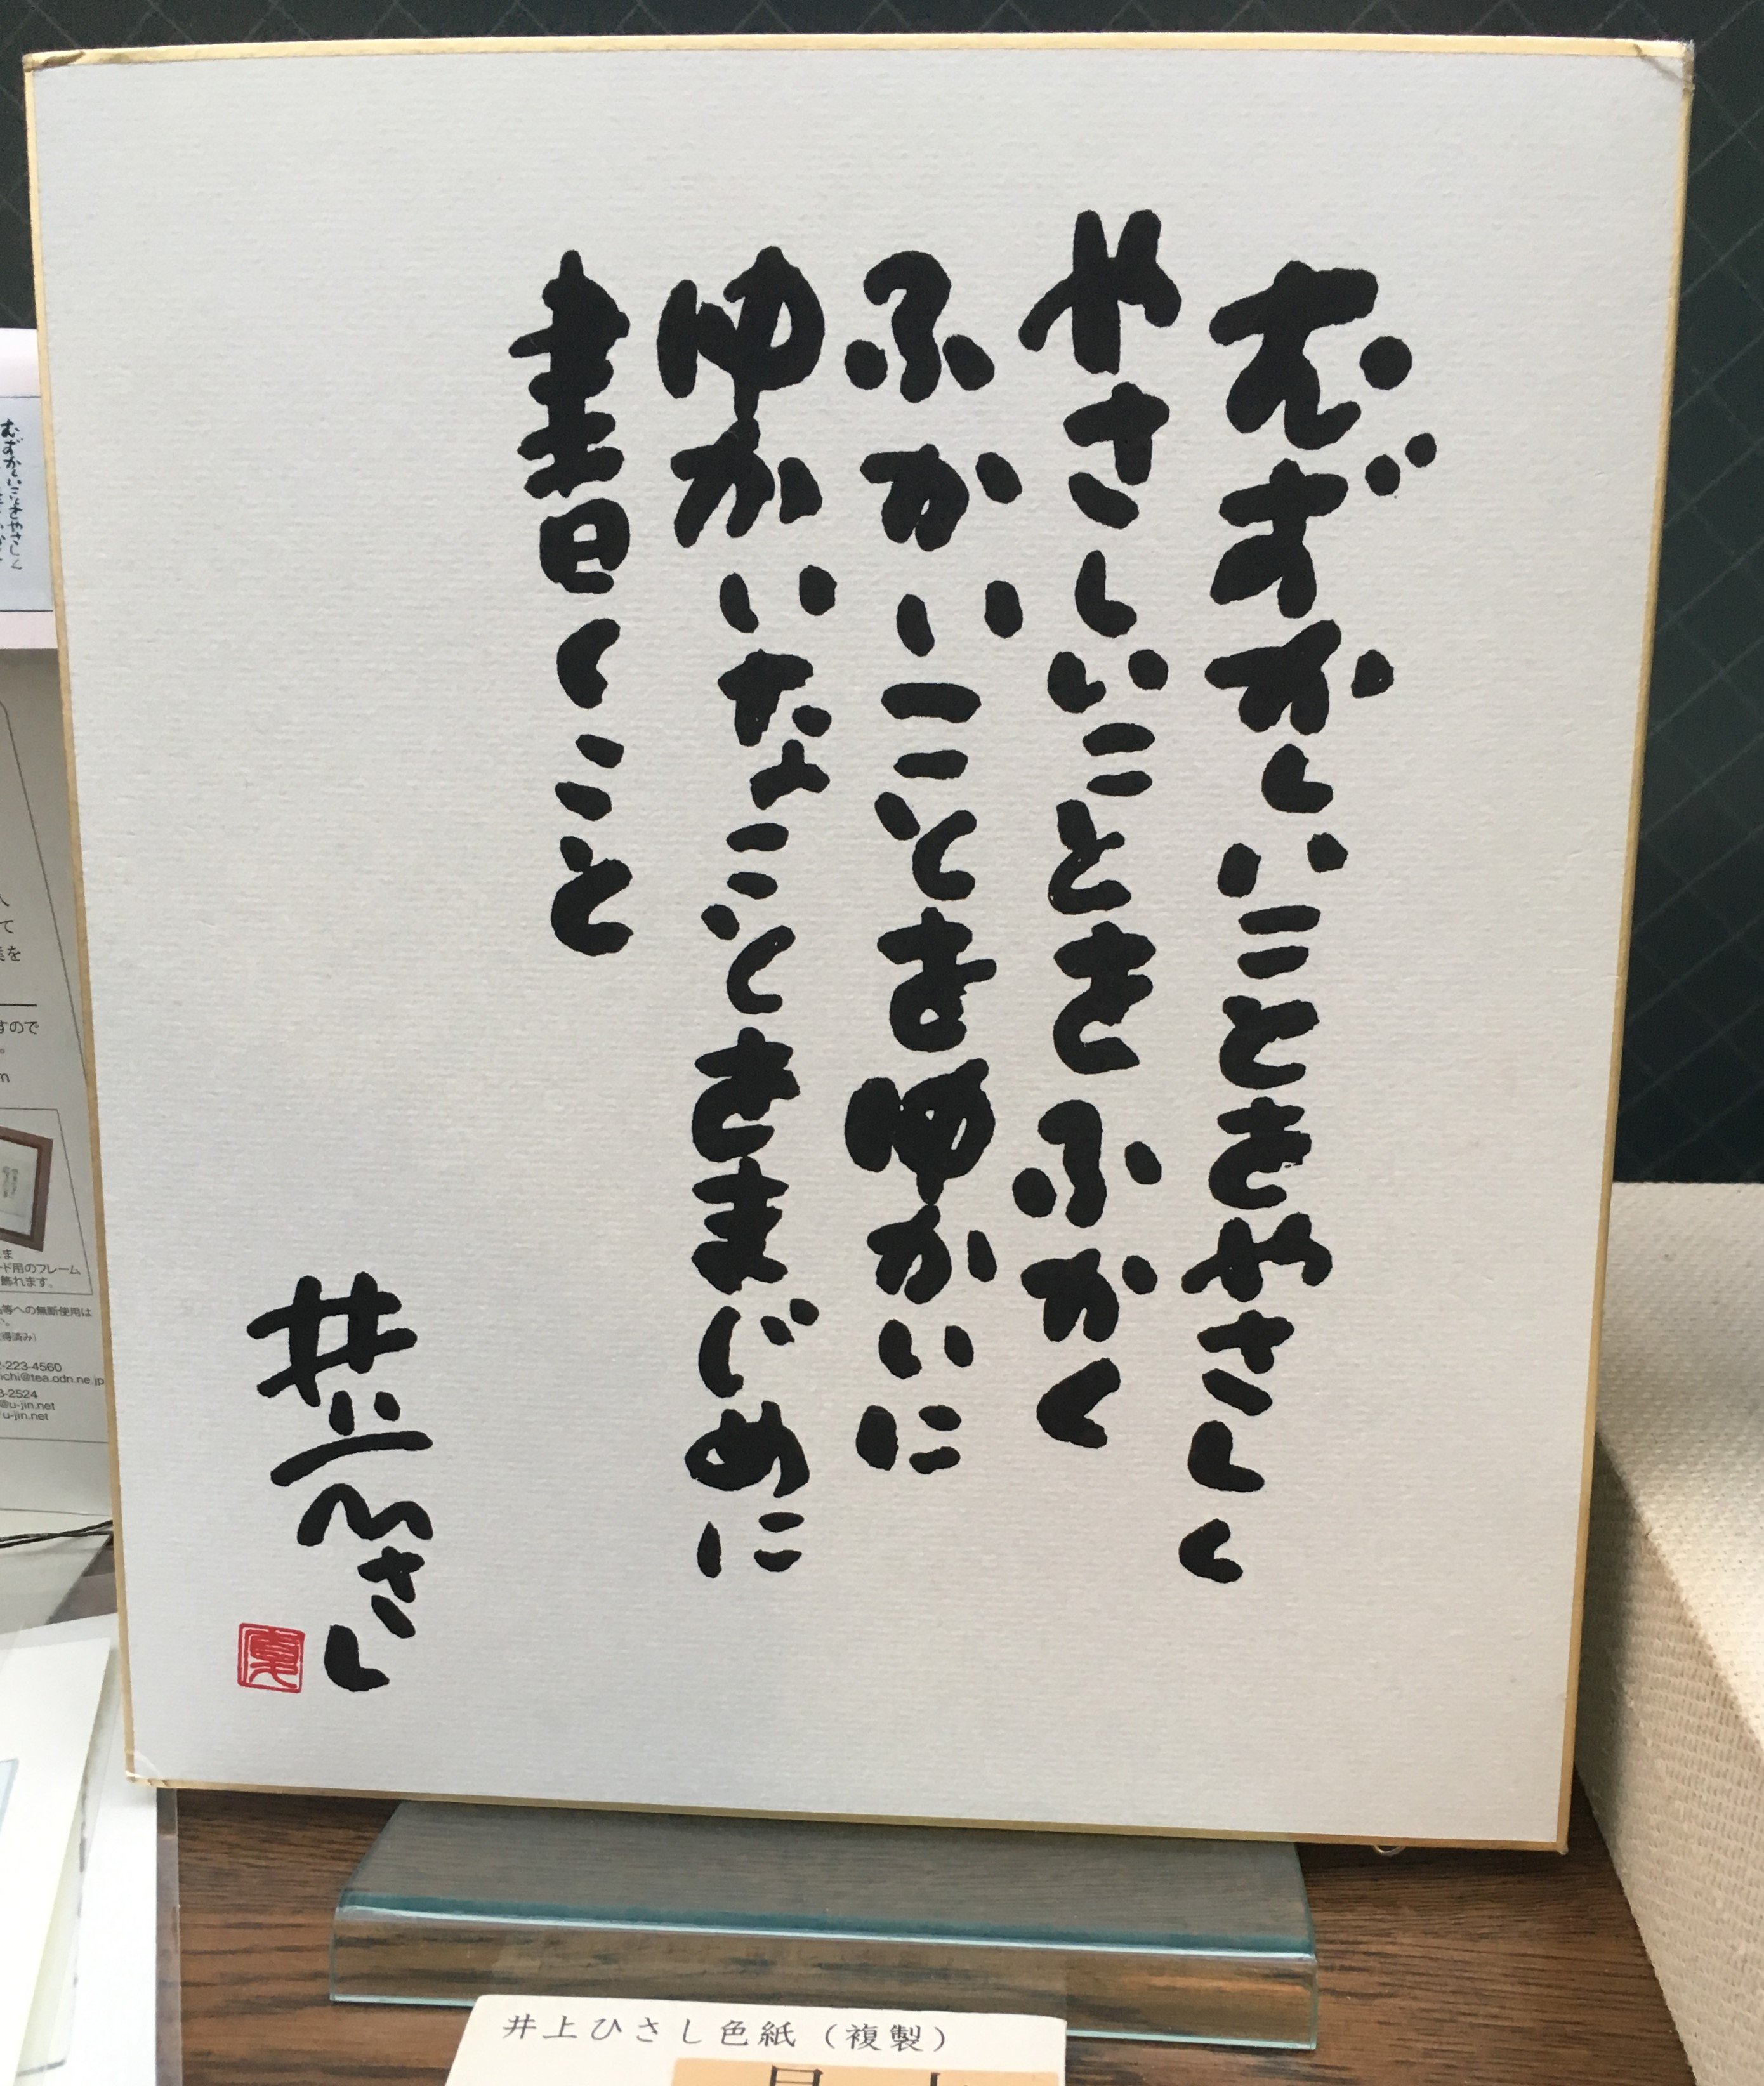 むずかしいことをやさしく
やさしいことをふかく
ふかいことをゆかいに
ゆかいなことをまじめに
書くこと
井上ひさし
井上ひさし色紙（複製）
むずかしいことをやさしく
て
を
すので
。
m
ま
ド用のフレーム
飾れます。
等への無断使用は
い。
得済み）
2-223-4560
ichi@tea.odn.ne.jp
3-2524
@u-jin.net
u-jin.net